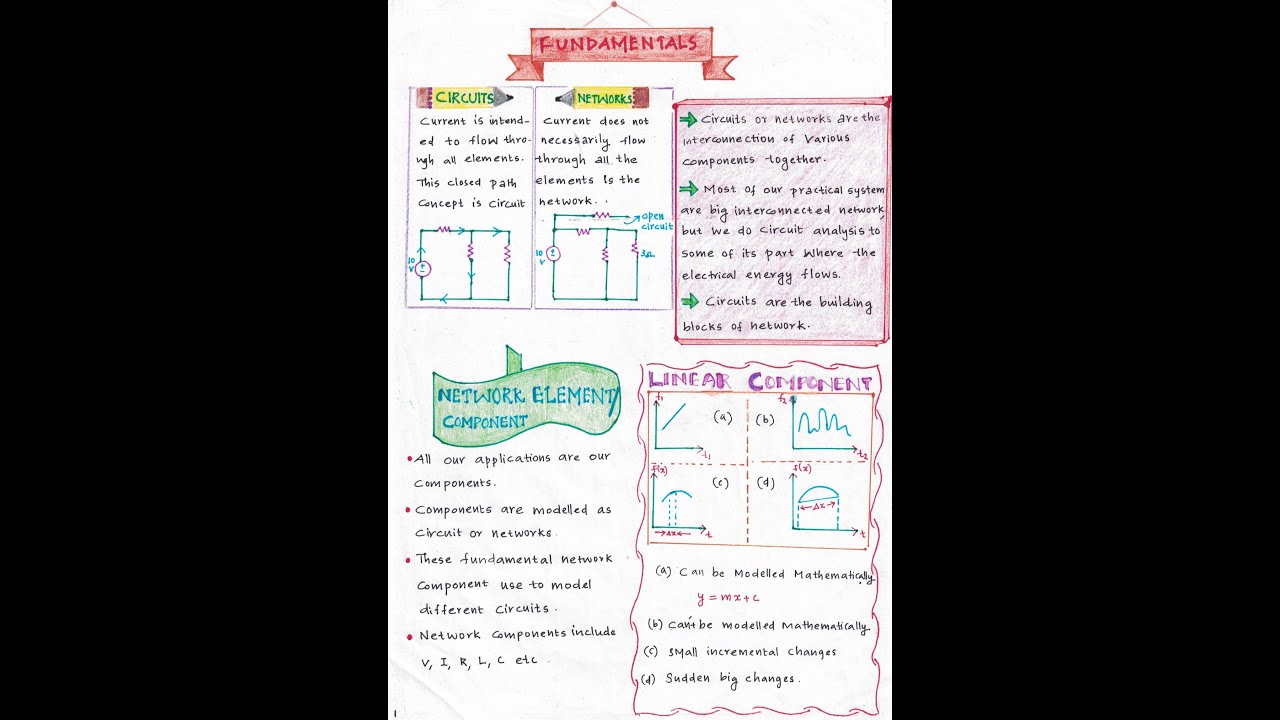 FUNDAMENTALS
CIRCUITS
Current is intend-
ed to flow thro-
ugh all elements.
This closed path
concept is circuit
10
V
NETWORKS
Current does not
necessarily flow
through all the
elements is the
network..
open
circuit
10
V
3Ω
Circuits or networks are the
interconnection of various
components together.
Most of our practical system
are big interconnected network
but we do circuit analysis to
some of its part where the
electrical energy flows.
Circuits are the building
blocks of network.
NETWORK ELEMENT/
COMPONENT
• All our applications are our
components.
• Components are modelled as
circuit or networks.
• These fundamental network
component use to model
different circuits.
• Network components include
V, I, R, L, C etc.
LINEAR COMPONENT
f1
(a)
t1
f2
(b)
t2
f(x)
(c)
Δx
t
f(x)
(d)
Δx
t
(a) Can be Modelled Mathematically
y = mx + c
(b) Can't be modelled Mathematically
(c) small incremental changes
(d) Sudden big changes.
1